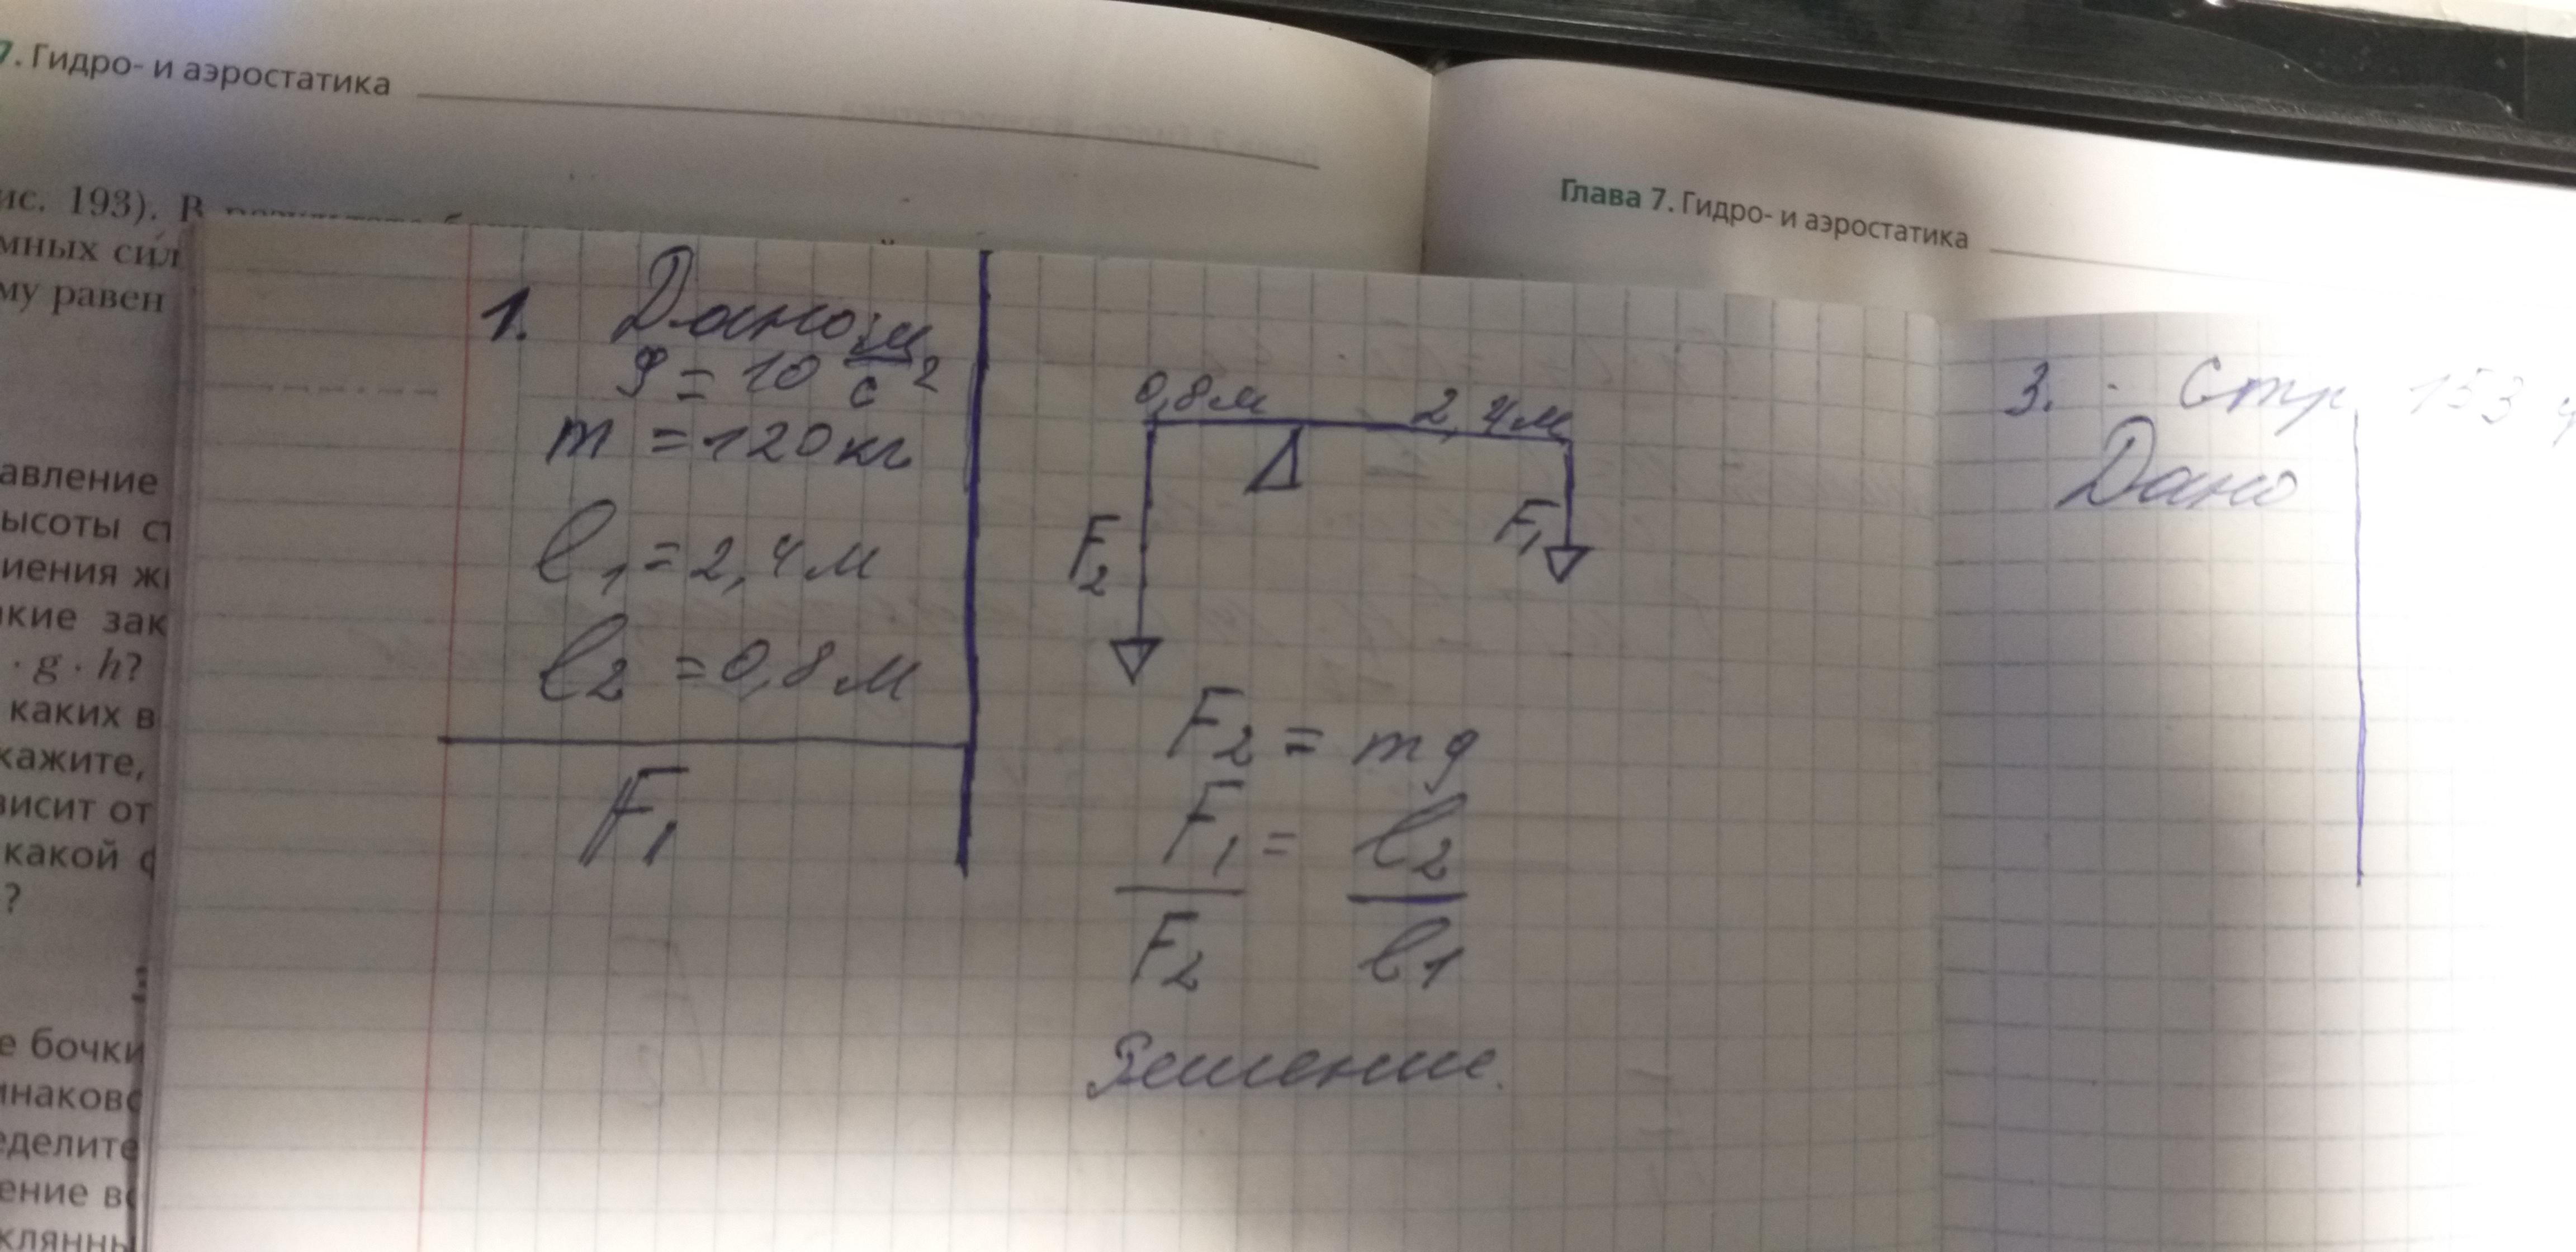 7. Гидро- и аэростатика
ис. 193). В
мных сил
му равен
авление
ысоты ст
нения жи
акие зак
· g · h?
каких в
кажите,
висит от
какой с
?
е бочки
инаково
еделите
ение во
клянны
Глава 7. Гидро- и аэростатика
1. Дано:
g = 10 м/с²
m = 120 кг
l₁ = 2,4 м
l₂ = 0,8 м
F₁
0,8 м 2,4 м
F₂ F₁
F₂ = mg
F₁ = l₂
F₂ l₁
Решение.
3. Стр 153
Дано